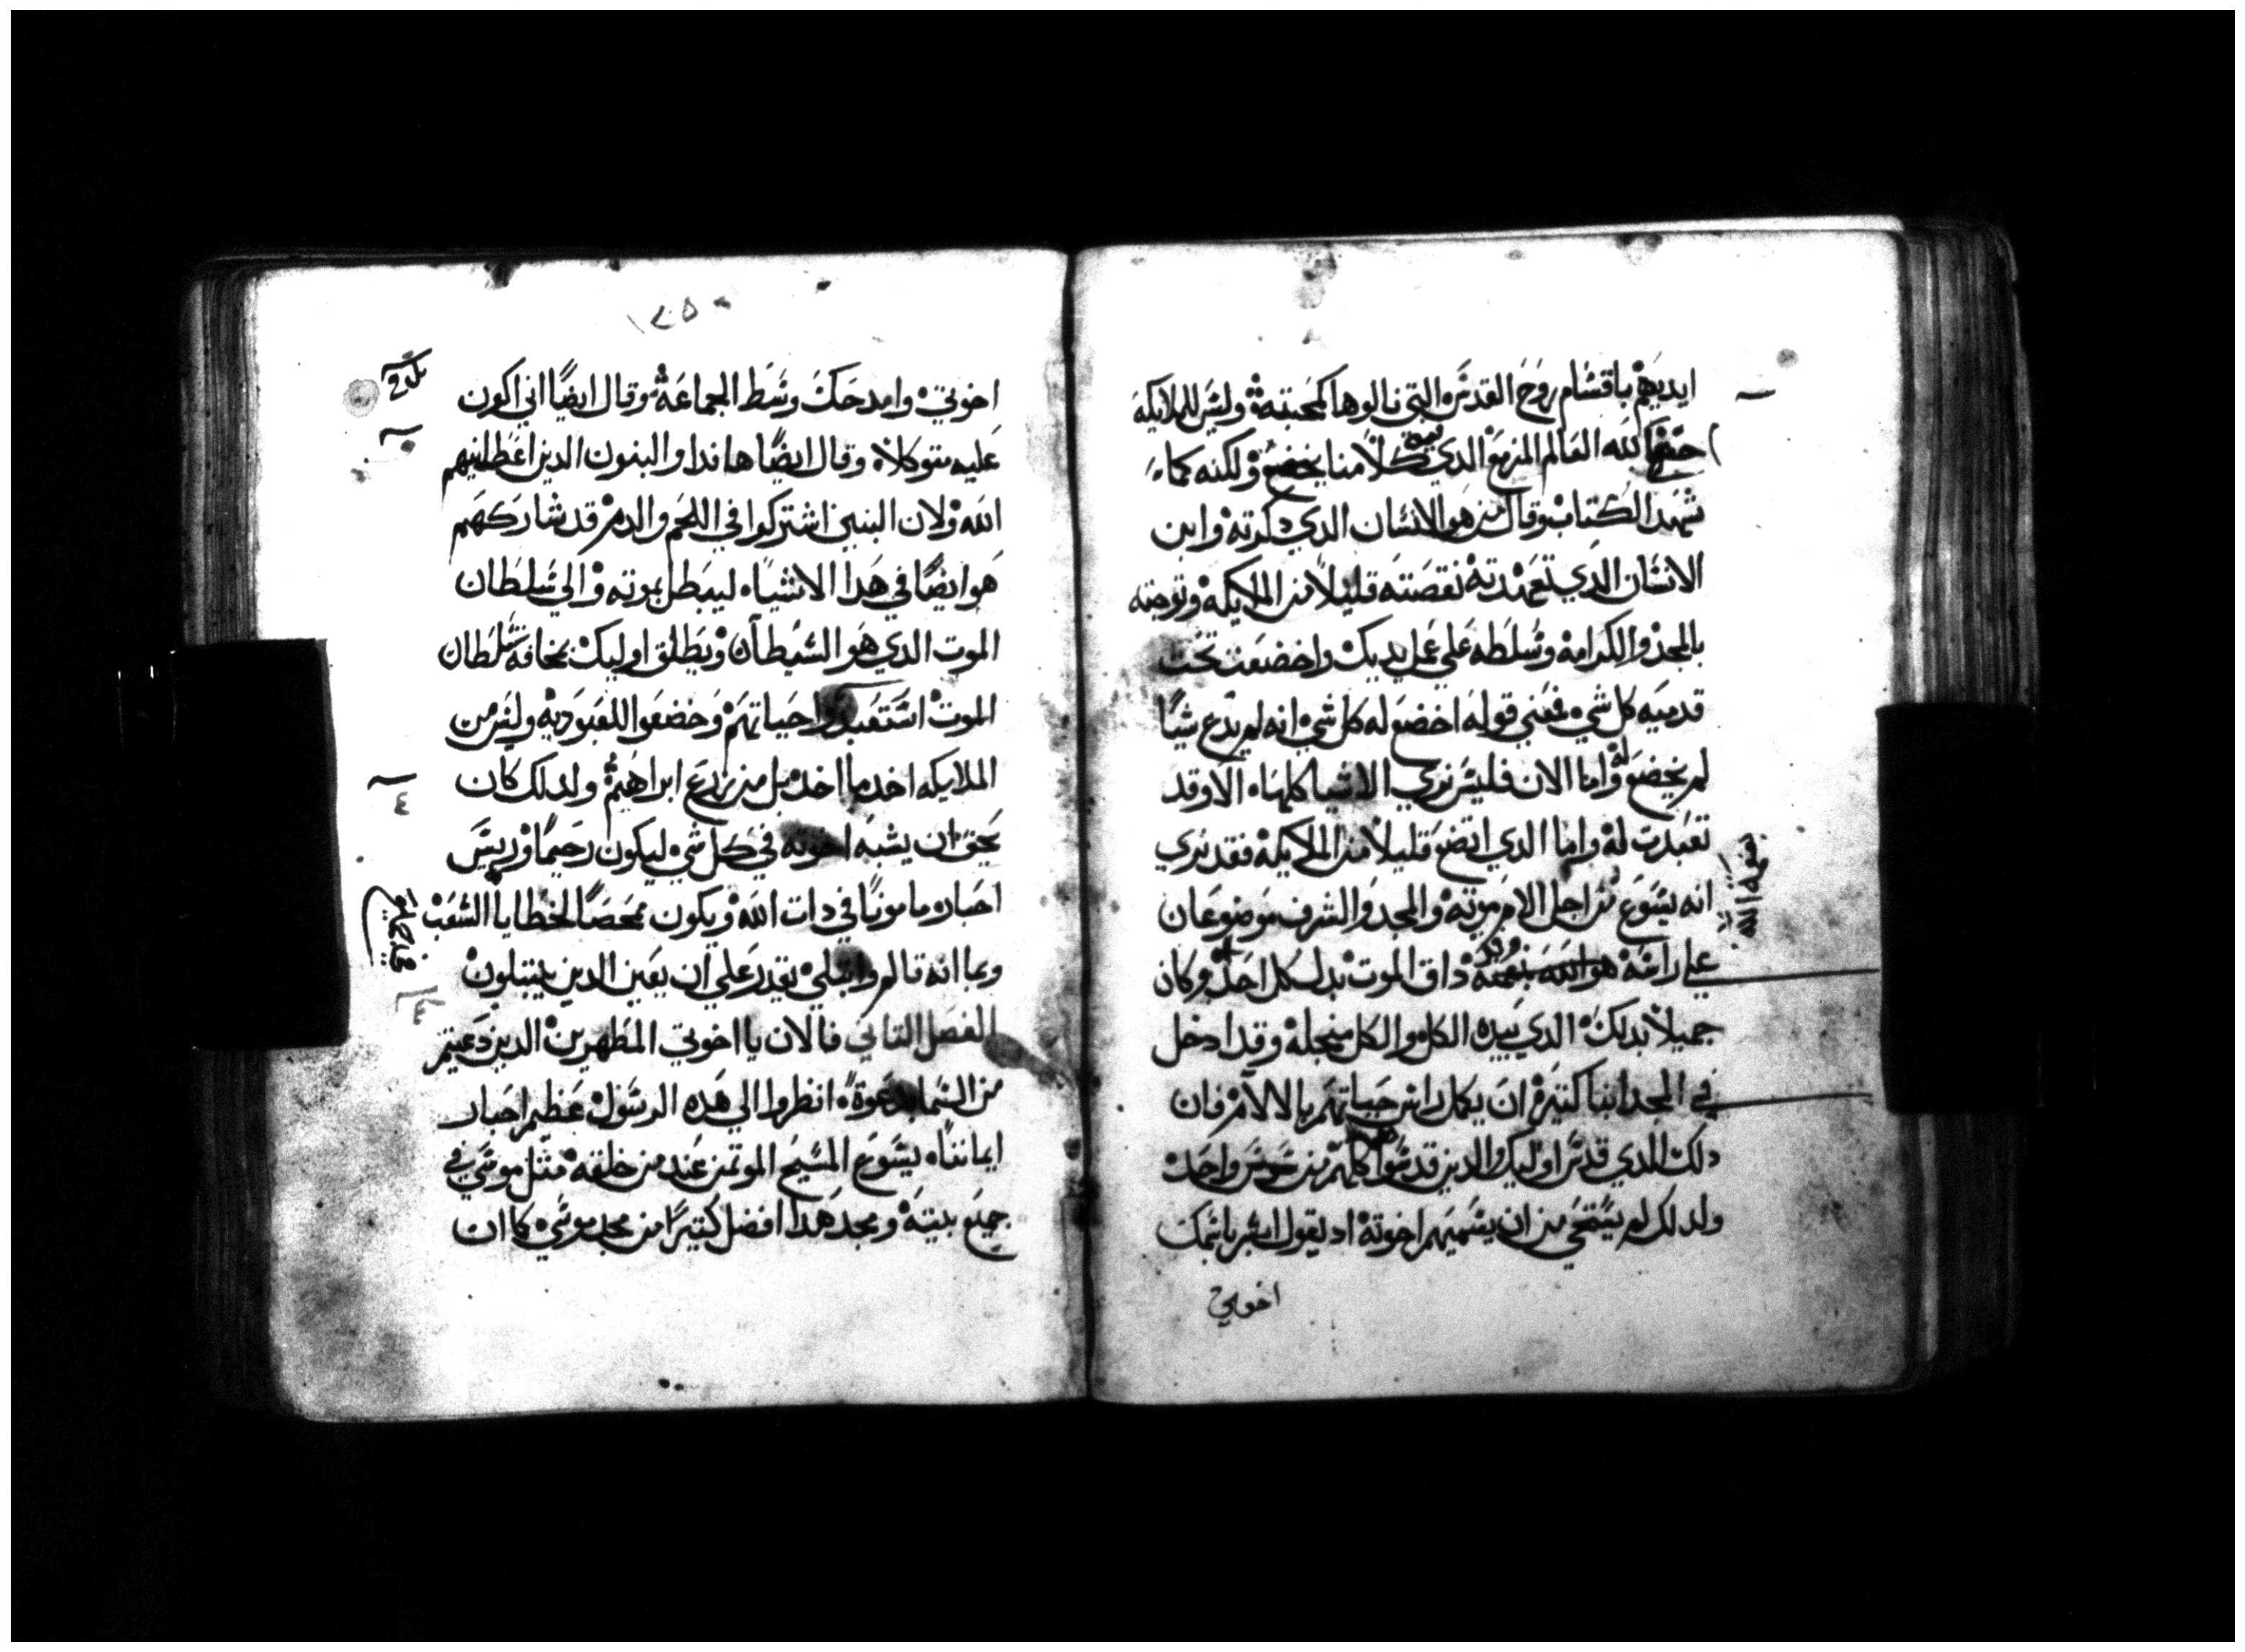 ايديهم باقسام روح القدس التي نالوها كمحبته وليس للملايكه
الله العالم المزمع الدي كلامنا ولكنه كما
شهد الكتاب وقال من هو الانسان الدي دكرته وابن
الانسان الدي تعهدته نقصته قليلا من الملايكه وتوجته
بالمجد والكرامه وسلطه علي عمل يديك واخضعت تحت
قدميه كل شي فعني قوله اخضع له كل شي انه لم يدع شيا
لم يخضع له واما الان فليس نري الاشيا كلها الا وقد
تعبدت له واما الدي اتضع قليلا من الملايكه فقد نري
انه يسوع من اجل الام موته والمجد والشرف موضوعان
علي راسه داق الموت بدل كل احد وكان
جميلا بدلك الدي بيده الكل والكل من اجله وقد ادخل
في المجد ابنا كتيره ان يكمل راس حياتهم بالالام فان
دلك الدي قدس اوليك والدين قدسوا كلهم من واحد
ولدلك لم يستحي من ان يسميهم اخوته اد يقول ابشر باسمك
اخوتي
بنعمة الله
١٢٥
اخوتي وامدحك وسط الجماعه وقال ايضا اني اكون
عليه متوكلا وقال ايضا هاندا والبنون الدين اعطانيهم
الله ولان البنين اشتركوا في اللحم والدم قد شاركهم
هو ايضا في هدا الاشياء ليبطل بموته والي سلطان
الموت الدي هو الشيطان ويطلق اوليك بمخافة سلطان
الموت استعبدوا حياتهم وخضعوا للعبوديه وليس من
الملايكه اخد ما اخد بل من زرع ابراهيم ولدلك كان
يحق ان يشبه اخوته في كل شي ليكون رحيما وريس
احبار مامونا في دات الله ويكون ممحصا لخطايا الشعب
وبما انه تالم وابتلي يقدر علي ان يعين الدين يبتلون
الفصل التاني فالان يا اخوتي المطهرين الدين دعيتم
من السما بدعوة انظروا الي هده الرسول عظيم احبار
ايماننا يسوع المسيح الموتمن عند من خلقه متل موسي في
جميع بيته ومجد هدا افضل كتيرا من مجد موسي كما ان
٤